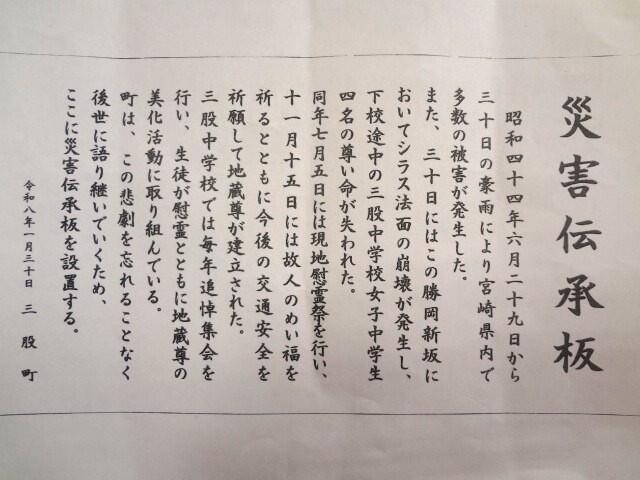 災害伝承板
昭和四十四年六月二十九日から
三十日の豪雨により宮崎県内で
多数の被害が発生した。
また、三十日にはこの勝岡新坂に
おいてシラス法面の崩壊が発生し、
下校途中の三股中学校女子中学生
四名の尊い命が失われた。
同年七月五日には現地慰霊祭を行い、
十一月十五日には故人のめい福を
祈るとともに今後の交通安全を
祈願して地蔵尊が建立された。
三股中学校では毎年追悼集会を
行い、生徒が慰霊とともに地蔵尊の
美化活動に取り組んでいる。
町は、この悲劇を忘れることなく
後世に語り継いでいくため、
ここに災害伝承板を設置する。
令和八年一月三十日 三股町